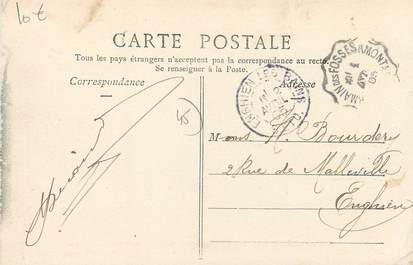 10 €
CARTE POSTALE
Tous les pays étrangers n'acceptent pas la correspondance au recto.
Se renseigner à la Poste.
Correspondance
Adresse
45
ENGHIEN LES BAINS
Mons
2 Rue de Malleville
Enghien